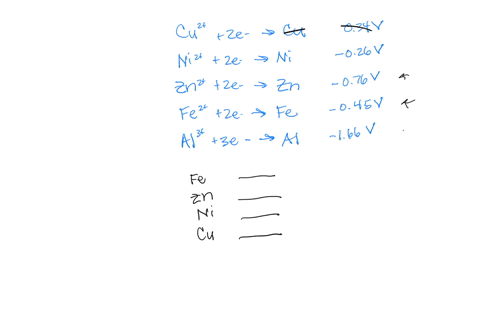 Cu²⁺ + 2e- → Cu 0.34 V
Ni²⁺ + 2e- → Ni -0.26 V
Zn²⁺ + 2e- → Zn -0.76 V
Fe²⁺ + 2e- → Fe -0.45 V
Al³⁺ + 3e- → Al -1.66 V
Fe
Zn
Ni
Cu